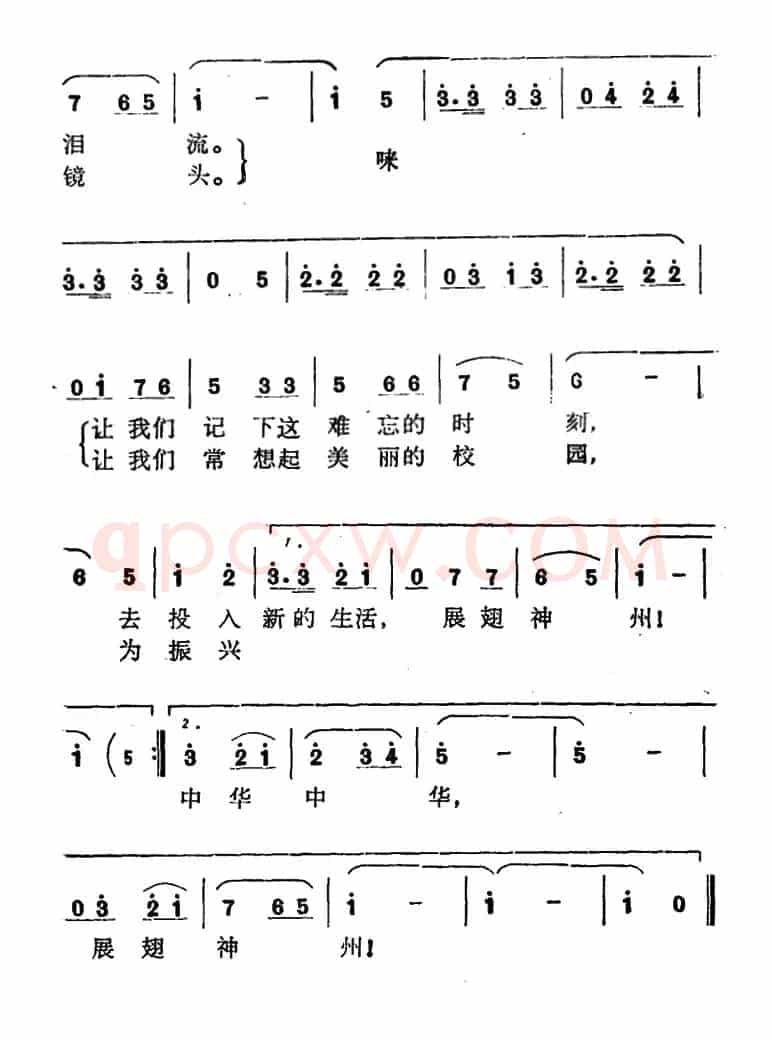 7 6 5 | i - | i 5 | 3. 3 3 3 | 0 4 2 4 |
泪 流。
镜 头。 咪
3. 3 3 3 | 0 5 | 2. 2 2 2 | 0 3 i 3 | 2. 2 2 2 |
0 i 7 6 | 5 3 3 | 5 6 6 | 7 5 | G - |
让我们 记 下这 难 忘的 时 刻,
让我们 常 想起 美 丽的 校 园,
qpcxw.COM
1.
6 5 | i 2 | 3. 3 2 i | 0 7 7 | 6 5 | i - |
去 投 入 新的 生活, 展 翅 神 州!
为 振 兴
2.
i ( 5 :‖ 3 2 i | 2 3 4 | 5 - | 5 - |
中 华 中 华,
0 3 2 i | 7 6 5 | i - | i - | i 0 ‖
展 翅 神 州!